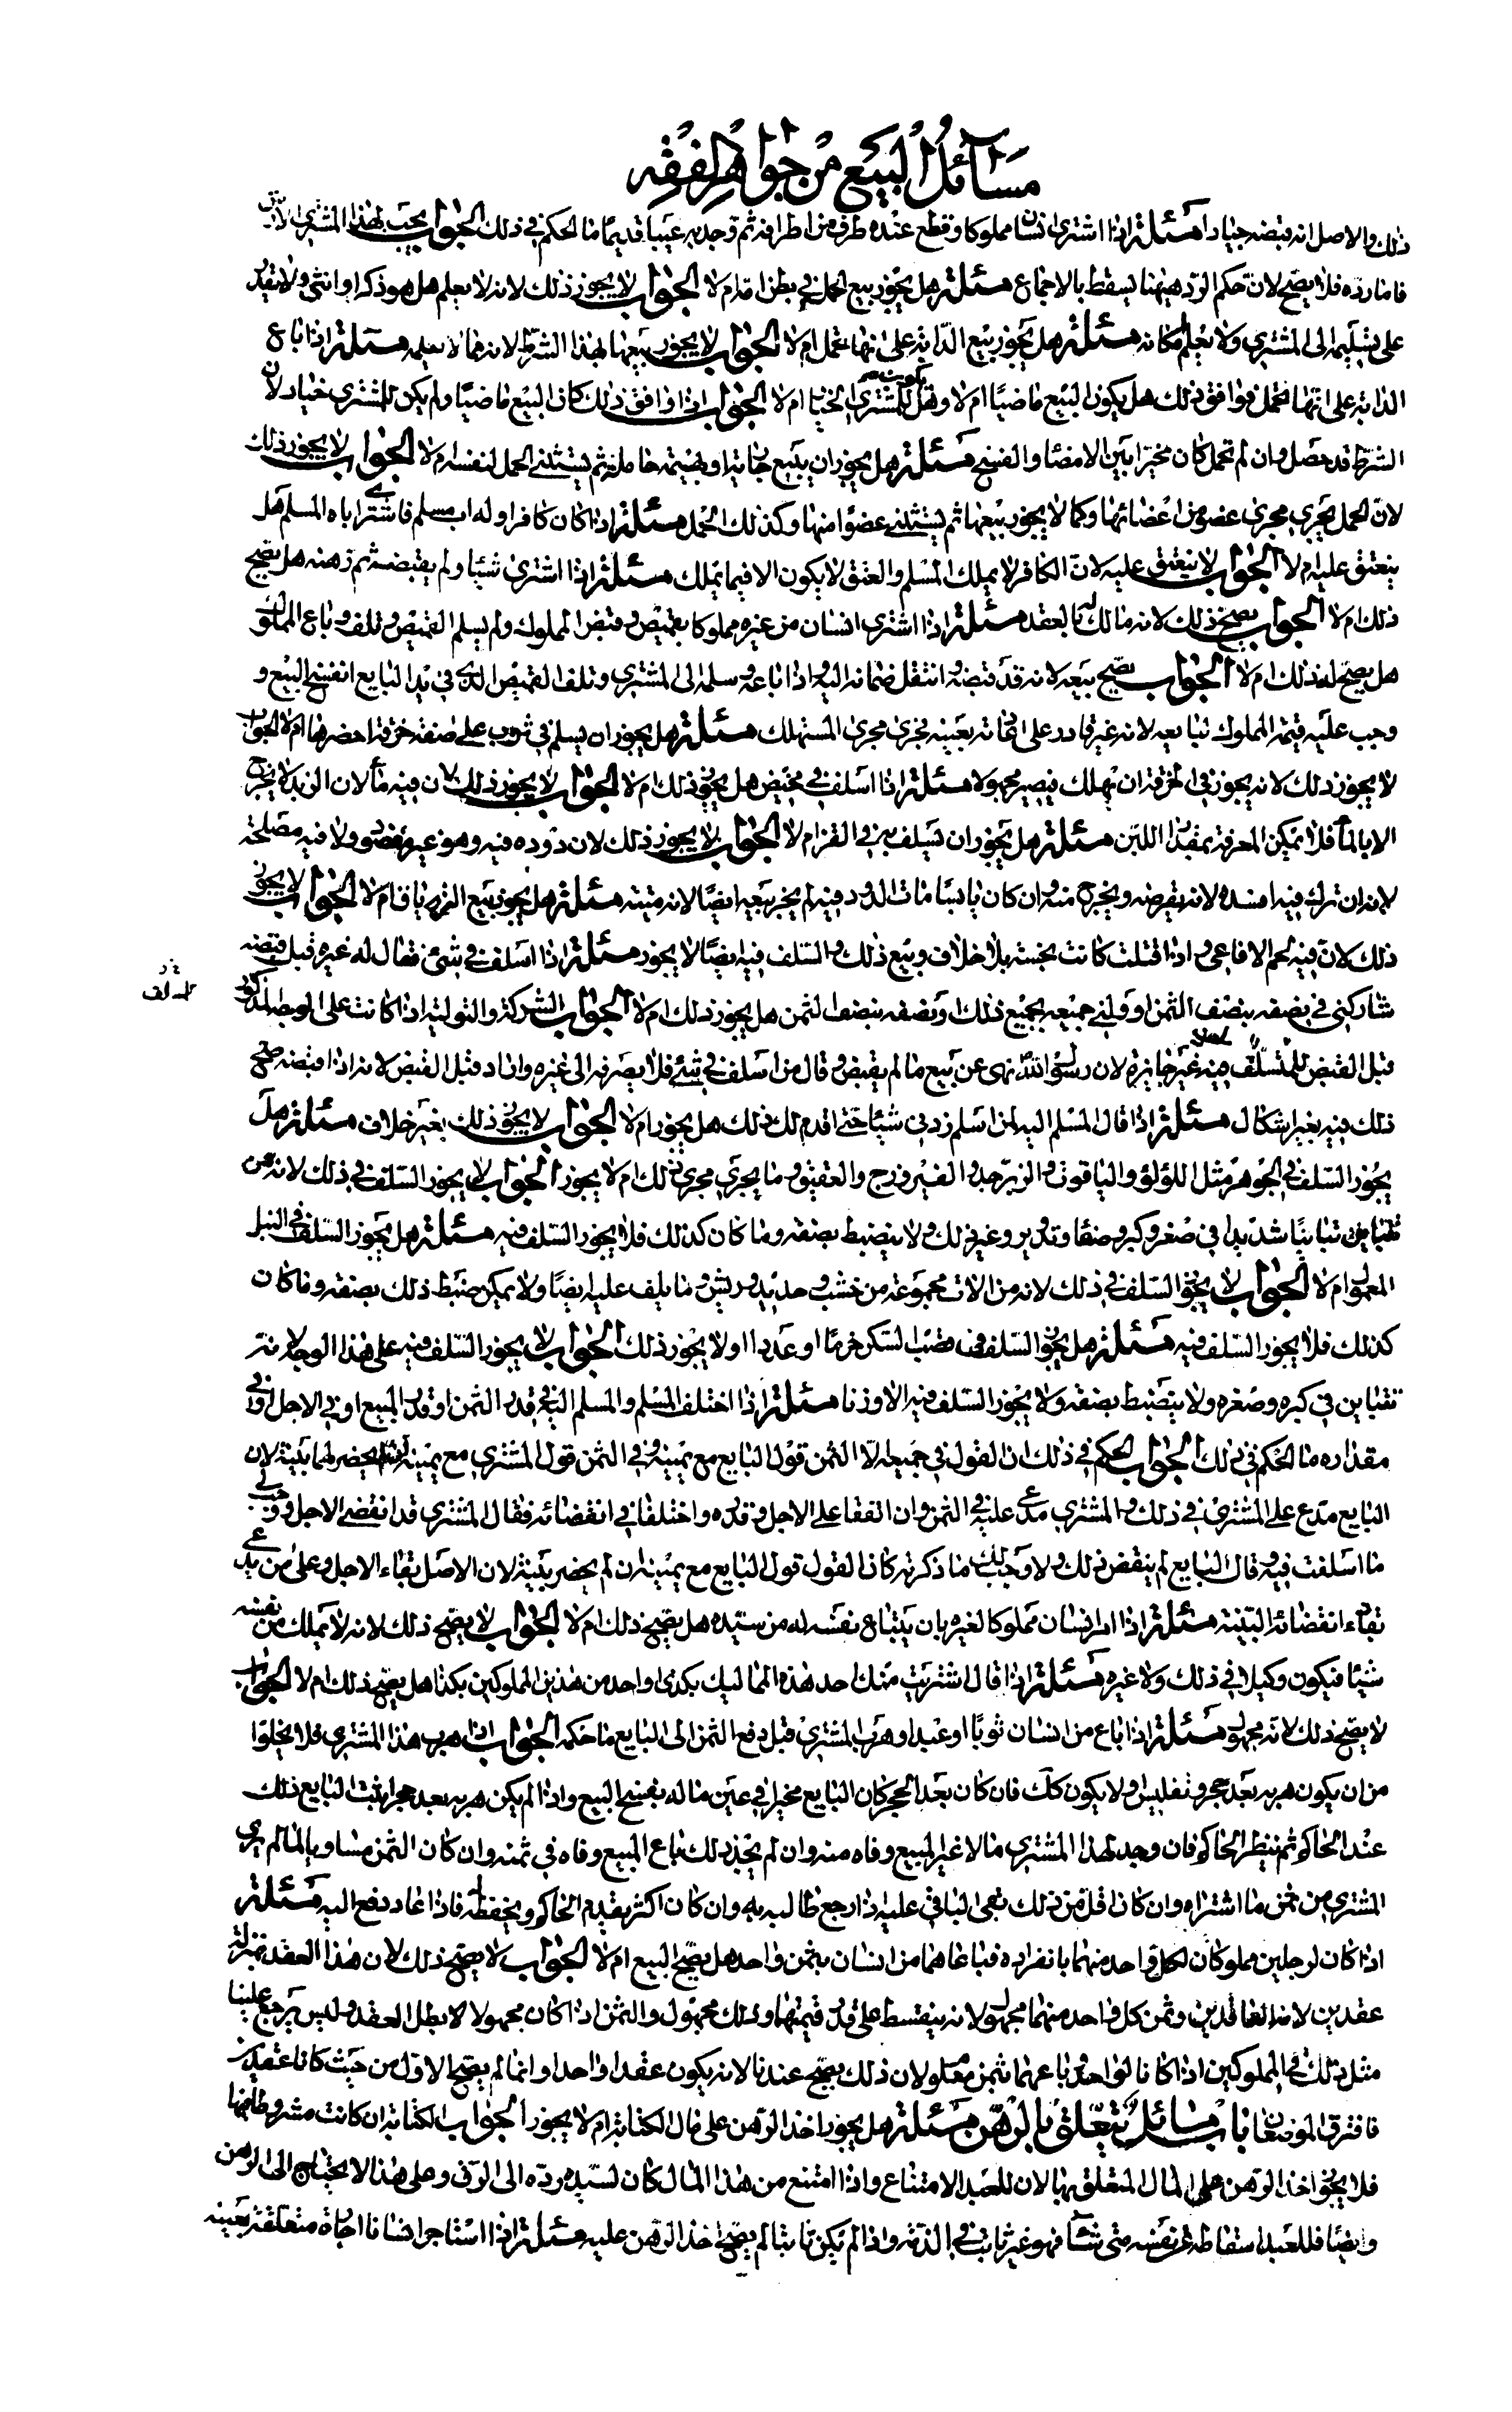 مسائل البيع من جواهر الفقه
ذلك والاصل انه قبضه جيادا مسئلة اذا اشترى انسان مملوكا وقطع عنده طرف من اطرافه ثم وجد به عيبا قديما ما الحكم في ذلك الجواب يجب لهذا المشتري الارش
فاما رده فلا يصح لان حكم الرد ههنا يسقط بالاجماع مسئلة هل يجوز بيع الحمل في بطن امه ام لا الجواب لا يجوز ذلك لانه لا يعلم هل هو ذكر او انثى ولا يقدر
على تسليمه الى المشتري ولا يعلم مكانه مسئلة هل يجوز بيع الدابة على انها تحمل ام لا الجواب لا يجوز بيعها بهذا الشرط لانه مما لا يعلمه مسئلة اذا باع
الدابة على انها تحمل فوافق ذلك هل يكون البيع ماضيا ام لا وهل يكون للمشتري الخيار ام لا الجواب اذا وافق ذلك كان البيع ماضيا ولم يكن للمشتري خيار لان
الشرط قد حصل وان لم تحمل كان مخيرا بين الامضاء والفسخ مسئلة هل يجوز ان يبيع جارية او بهيمة حاملة ثم يستثنى الحمل لنفسه ام لا الجواب لا يجوز ذلك
لان الحمل يجري مجرى عضو من اعضائها وكما لا يجوز بيعها ثم يستثنى عضوا منها وكذلك الحمل مسئلة اذا كان كافرا وله اب مسلم فاشترى اباه المسلم هل
ينعتق عليه ام لا الجواب لا ينعتق عليه لان الكافر لا يملك المسلم والعتق لا يكون الا فيما يملك مسئلة اذا اشترى شيئا ولم يقبضه ثم رهنه هل يصح
ذلك ام لا الجواب يصح ذلك لانه مالك له بالعقد مسئلة اذا اشترى انسان من غيره مملوكا بقميص وقبض المملوك ولم يسلم القميص وتلف وباع المملوك
هل يصح له ذلك ام لا الجواب يصح بيعه لانه قد قبضه وانتقل ضمانه اليه واذا باعه وسلمه الى المشتري وتلف القميص الذي في يد البايع انفسخ البيع و
وجب عليه قيمة المملوك لبايعه لانه غير قادر على رده بعينه فجرى مجرى المستهلك مسئلة هل يجوز ان يسلم في ثوب على صفة خرقة احضرها ام لا الجواب
لا يجوز ذلك لانه يجوز في الخرقة ان تهلك فيصير مجهولا مسئلة اذا اسلف في مخيض هل يجوز ذلك ام لا الجواب لا يجوز ذلك لان فيه ماء لان الزبد لا يخرج
الا بالماء فلا تمكن المعرفة بمقدار اللبن مسئلة هل يجوز ان يسلف في القز ام لا الجواب لا يجوز ذلك لان دوده فيه وهو غير مقصود ولا فيه مصلحة
لانه ان ترك فيه افسده لانه يقرضه ويخرج منه وان كان يابسا مات الدود فيه لم يجز بيعه ايضا لانه ميتة مسئلة هل يجوز بيع الترياق ام لا الجواب لا يجوز
ذلك لان فيه لحم الافاعى واذا قتلت كانت نجسة بلا خلاف وبيع ذلك والسلف فيه ايضا لا يجوز مسئلة اذا اسلف في شيء فقال له غيره قبل قبضه
شاركنى في نصفه بنصف الثمن او ولنى جميعه بجميع ذلك ونصفه بنصف الثمن هل يجوز ذلك ام لا الجواب الشركة والتولية اذا كانت على الوجه المذكور
قبل القبض للمتسلف فيه غير جايزة لان رسول الله نهى عن بيع ما لم يقبض وقال من اسلف في شيء فلا يصرفه الى غيره واراد قبل القبض لانه اذا قبضه صح
ذلك فيه بغير اشكال مسئلة اذا قال المسلم اليه لمن اسلم زدنى شيئا حتى اقدم لك ذلك هل يجوز ام لا الجواب لا يجوز ذلك بغير خلاف مسئلة هل
يجوز السلف في الجوهر مثل اللؤلؤ والياقوت والزبرجد والفيروزج والعقيق وما يجرى مجرى ذلك ام لا يجوز الجواب لا يجوز السلف في ذلك لانه
تباينا شديدا في صغر وكبر وصفاء وتدوير وغير ذلك ولا ينضبط بصفة وما كان كذلك فلا يجوز السلف فيه مسئلة هل يجوز السلف في النبل
المعمول ام لا الجواب لا يجوز السلف في ذلك لانه من الات مجموعة من خشب وحديد وريش وما يلف عليه ايضا ولا يمكن ضبط ذلك بصفة وما كان
كذلك فلا يجوز السلف فيه مسئلة هل يجوز السلف في قصب السكر حزما او عددا او لا يجوز ذلك الجواب لا يجوز السلف فيه على هذا الوجه لانه
يتباين في كبره وصغره ولا ينضبط بصفة ولا يجوز السلف فيه الا وزنا مسئلة اذا اختلف المسلم والمسلم اليه في قدر الثمن او قدر المبيع او في الاجل او في
مقداره ما الحكم في ذلك الجواب الحكم في ذلك ان القول في جميعه الا الثمن قول البايع مع يمينه وفي الثمن قول المشترى مع يمينه بينة لان
البايع مدع على المشترى في ذلك والمشترى مدعى عليه في الثمن وان اتفقا على الاجل وقدره واختلفا في انقضائه فقال المشترى قد انقضى الاجل ووجب لى
ما اسلفت فيه وقال البايع لم ينقض ذلك ولا وجب لك ما ذكرته كان القول قول البايع مع يمينه ان لم يحضر بينة لان الاصل بقاء الاجل وعلى من يدعى
انقضائه البينة مسئلة اذا امر انسان مملوكا لغيره بان يبتاع نفسه له من سيده هل يصح ذلك ام لا الجواب لا يصح ذلك لانه لا يملك من نفسه
شيئا فيكون وكيلا في ذلك ولا غيره مسئلة اذا قال اشتريت منك احد هذه المماليك بكذى او احد من هذين المملوكين بكذا هل يصح ذلك ام لا الجواب
لا يصح ذلك لانه مجهول مسئلة اذا باع من انسان ثوبا او عبدا وهرب المشترى قبل دفع الثمن الى البايع ما حكمه الجواب اذا هرب هذا المشترى فلا يخلوا
من ان يكون هربه بعد حجر وتفليس ولا يكون كك فان كان بعد الحجر كان البايع مخيرا في عين ماله بفسخ البيع واذا لم يكن هربه بعد حجر اثبت البايع ذلك
عند الحاكم ثم ينظر الحاكم فان وجد لهذا المشترى مالا غير المبيع وفاه منه وان لم يجد ذلك باع المبيع وفاه في ثمنه وان كان الثمن مساويا لما لم
المشترى من ثمن ما اشتراه وان كان اقل من ذلك بقى الباقى عليه اذا رجع طالبه به وان كان اكثر يقدم الحاكم ويحفظه فاذا عاد دفع اليه مسئلة
اذا كان لرجلين مملوكان لكل واحد منهما بانفراده فباعاهما من انسان بثمن واحد هل يصح البيع ام لا الجواب لا يصح ذلك لان هذا العقد بمنزلة
عقدين لانه العاقدين وثمن كل واحد منهما مجهول لانه يتقسط على قدر قيمتهما وذلك مجهول والثمن اذا كان مجهولا بطل العقد وليس يرجع علينا
مثل ذلك في المملوكين اذا كانا لواحد وباعهما بثمن معلوم لان ذلك يصح عندنا لانه يكون عقدا واحدا وانما لم يصح الاول من حيث كانا عقدين
فافترق الموضعان باب مسائل يتعلق بالرهن مسئلة هل يجوز اخذ الرهن على مال الكتابة ام لا يجوز الجواب الكتابة ان كانت مشروطة
فلا يجوز اخذ الرهن على المال المتعلق بها لان للعبد الامتناع واذا امتنع من هذا المال كان لسيده رده الى الرق وعلى هذا لا يحتاج الى الرهن
وايضا فللعبد اسقاطه عن نفسه متى شاء فهو غير ثابت في الذمة واذا لم يكن ثابتا لم يصح اخذ الرهن عليه مسئلة اذا استاجر انسانا اجارة متعلقة بعينه